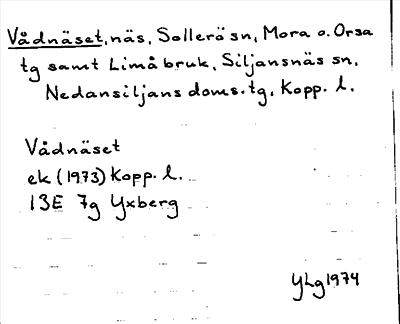 Vådnäset, näs, Sollerö sn, Mora o. Orsa
tg samt Limå bruk, Siljansnäs sn,
Nedansiljans doms. tg, Kopp. l.
Vådnäset
ek (1973) Kopp. l.
13E 7g Yxberg
YLg 1974